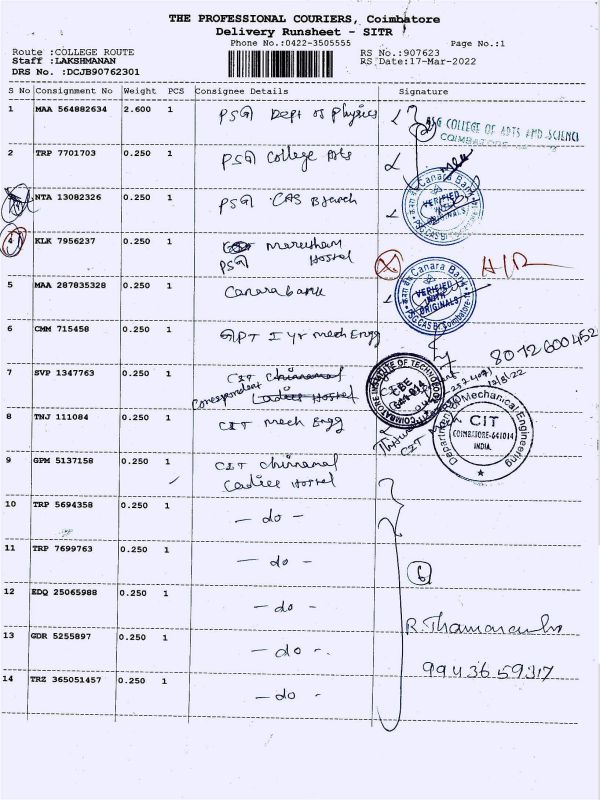 THE PROFESSIONAL COURIERS, Coimbatore
Delivery Runsheet - SITR
Phone No.:0422-3505555 Page No.:1
Route :COLLEGE ROUTE RS No.:907623
Staff :LAKSHMANAN RS Date:17-Mar-2022
DRS No. :DCJB90762301
S No Consignment No Weight PCS Consignee Details Signature
1 MAA 564882634 2.600 1 PSG Dept of Physics
PSG COLLEGE OF ARTS AND SCIENCE
COIMBATORE
2 TRP 7701703 0.250 1 PSG College Arts
NTA 13082326 0.250 1 PSG CAS Branch
Canara Bank
VERIFIED
WITH
ORIGINALS
PSG CAS Br
4 KLK 7956237 0.250 1 Marutham
PSG Hostel
5 MAA 287835328 0.250 1 Canara bank
Canara Bank
VERIFIED
WITH
ORIGINALS
PSG CAS Br Coimbatore
6 CMM 715458 0.250 1 GPT I yr Mech Engg
8012600452
7 SVP 1347763 0.250 1 CIT Chinnamal
Correspondent Ladies Hostel
COIMBATORE INSTITUTE OF TECHNOLOGY
CBE
641 014
8 TNJ 111084 0.250 1 CIT Mech Engg
Department of Mechanical Engineering
CIT
COIMBATORE-641014
INDIA.
9 GPM 5137158 0.250 1 CIT Chinnamal
Ladies Hostel
10 TRP 5694358 0.250 1 - do -
11 TRP 7699763 0.250 1 - do -
6
12 EDQ 25065988 0.250 1 - do -
13 GDR 5255897 0.250 1 - do -
9943659317
14 TRZ 365051457 0.250 1 - do -